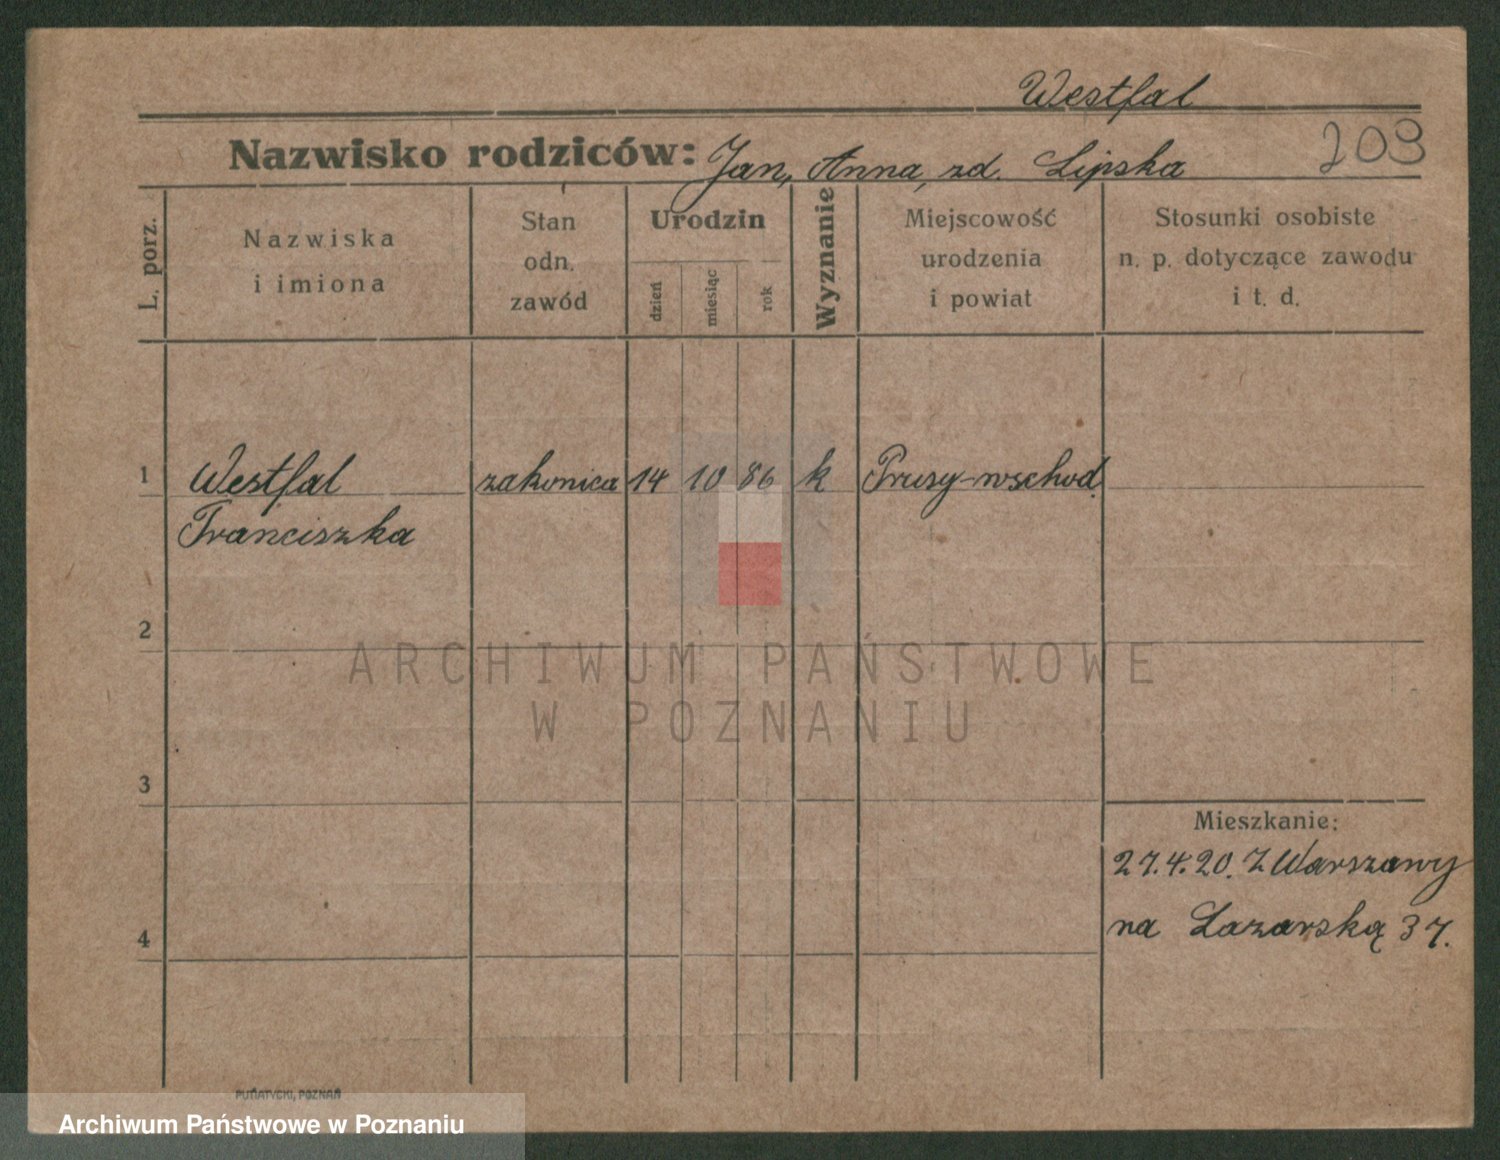 Westfal
Nazwisko rodziców: Jan, Anna, zd. Lipska
203
L. porz.
Nazwiska
i imiona
Stan
odn.
zawód
Urodzin
dzień
miesiąc
rok
Wyznanie
Miejscowość
urodzenia
i powiat
Stosunki osobiste
n. p. dotyczące zawodu
i t. d.
1 Westfal zakonica 14 10 86 k Prusy-wschod.
Franciszka
2
ARCHIWUM PAŃSTWOWE
W POZNANIU
3
Mieszkanie:
27.4.20. Z Warszawy
na Łazarską 37.
4
PUTIATYCKI, POZNAŃ
Archiwum Państwowe w Poznaniu